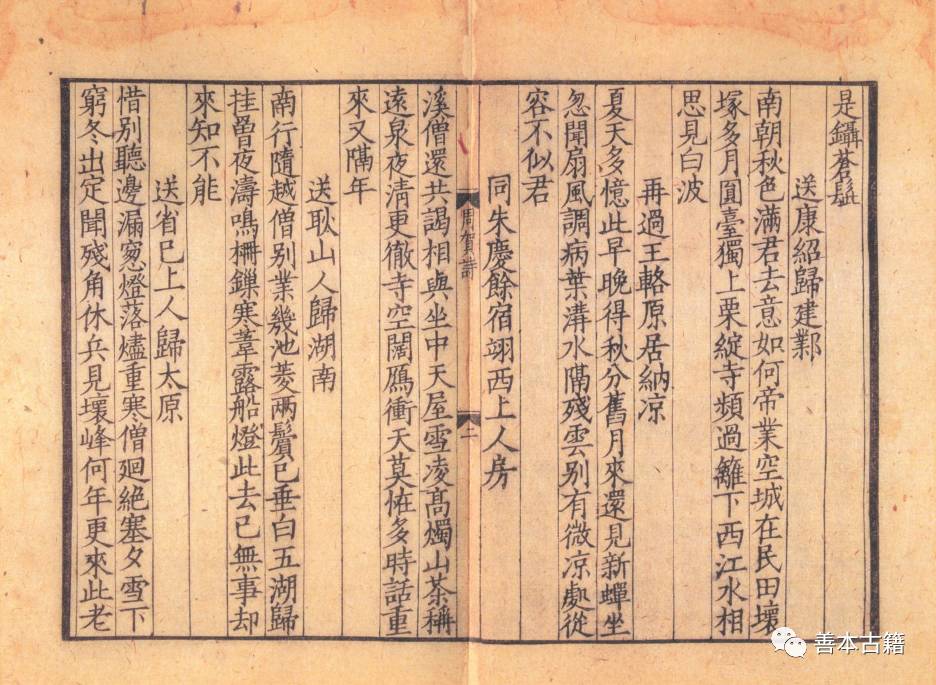 是鑷蒼髭
送康紹歸建鄴
南朝秋色滿君去意如何帝業空城在民田壞
塚多月圎臺獨上栗綻寺頻過籬下西江水相
思見白波
再過王輅原居納凉
夏天多憶此早晚得秋分舊月來還見新蟬坐
忽聞扇風調病葉溝水隔殘雲别有微凉處從
容不似君
同朱慶餘宿翊西上人房
溪僧還共謁相與坐中天屋雪凌髙燭山茶稱
遠泉夜清更徹寺空闊鴈衝天莫恠多時話重
來又隔年
送耿山人歸湖南
南行隨越僧别業幾池菱兩鬢已垂白五湖歸
挂罾夜濤鳴柵鏁寒葦露船燈此去已無事却
來知不能
送省已上人歸太原
惜别聽邊漏窻燈落燼重寒僧廻絶塞夕雪下
窮冬出定聞殘角休兵見壞峰何年更來此老
周賀詩
二
善本古籍